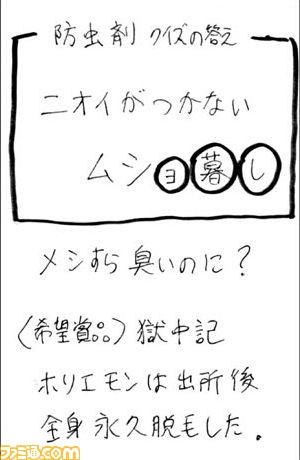 防虫剤 クイズの答え
ニオイがつかない
ムショ暮し
メシすら臭いのに?
(希望賞品)獄中記
ホリエモンは出所後
全身永久脱毛した。
ファミ通.com